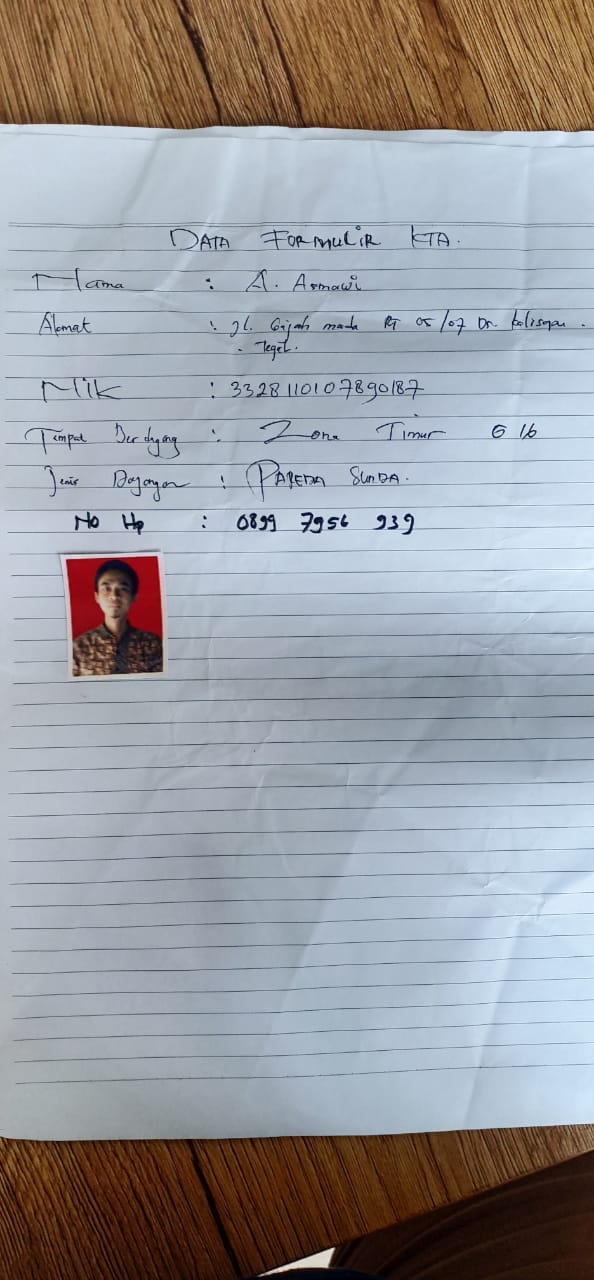 DATA FORMULIR KTA.
Nama : A. Asmawi
Alamat : Jl. Gajah mada RT 05/07 Ds. kalisapu.
- Tegal.
Nik : 3328110107890187
Tempat Berdagang : Zona Timur G 16
Jenis Dagangan : PAREDA SUNDA.
No Hp : 0899 7956 939